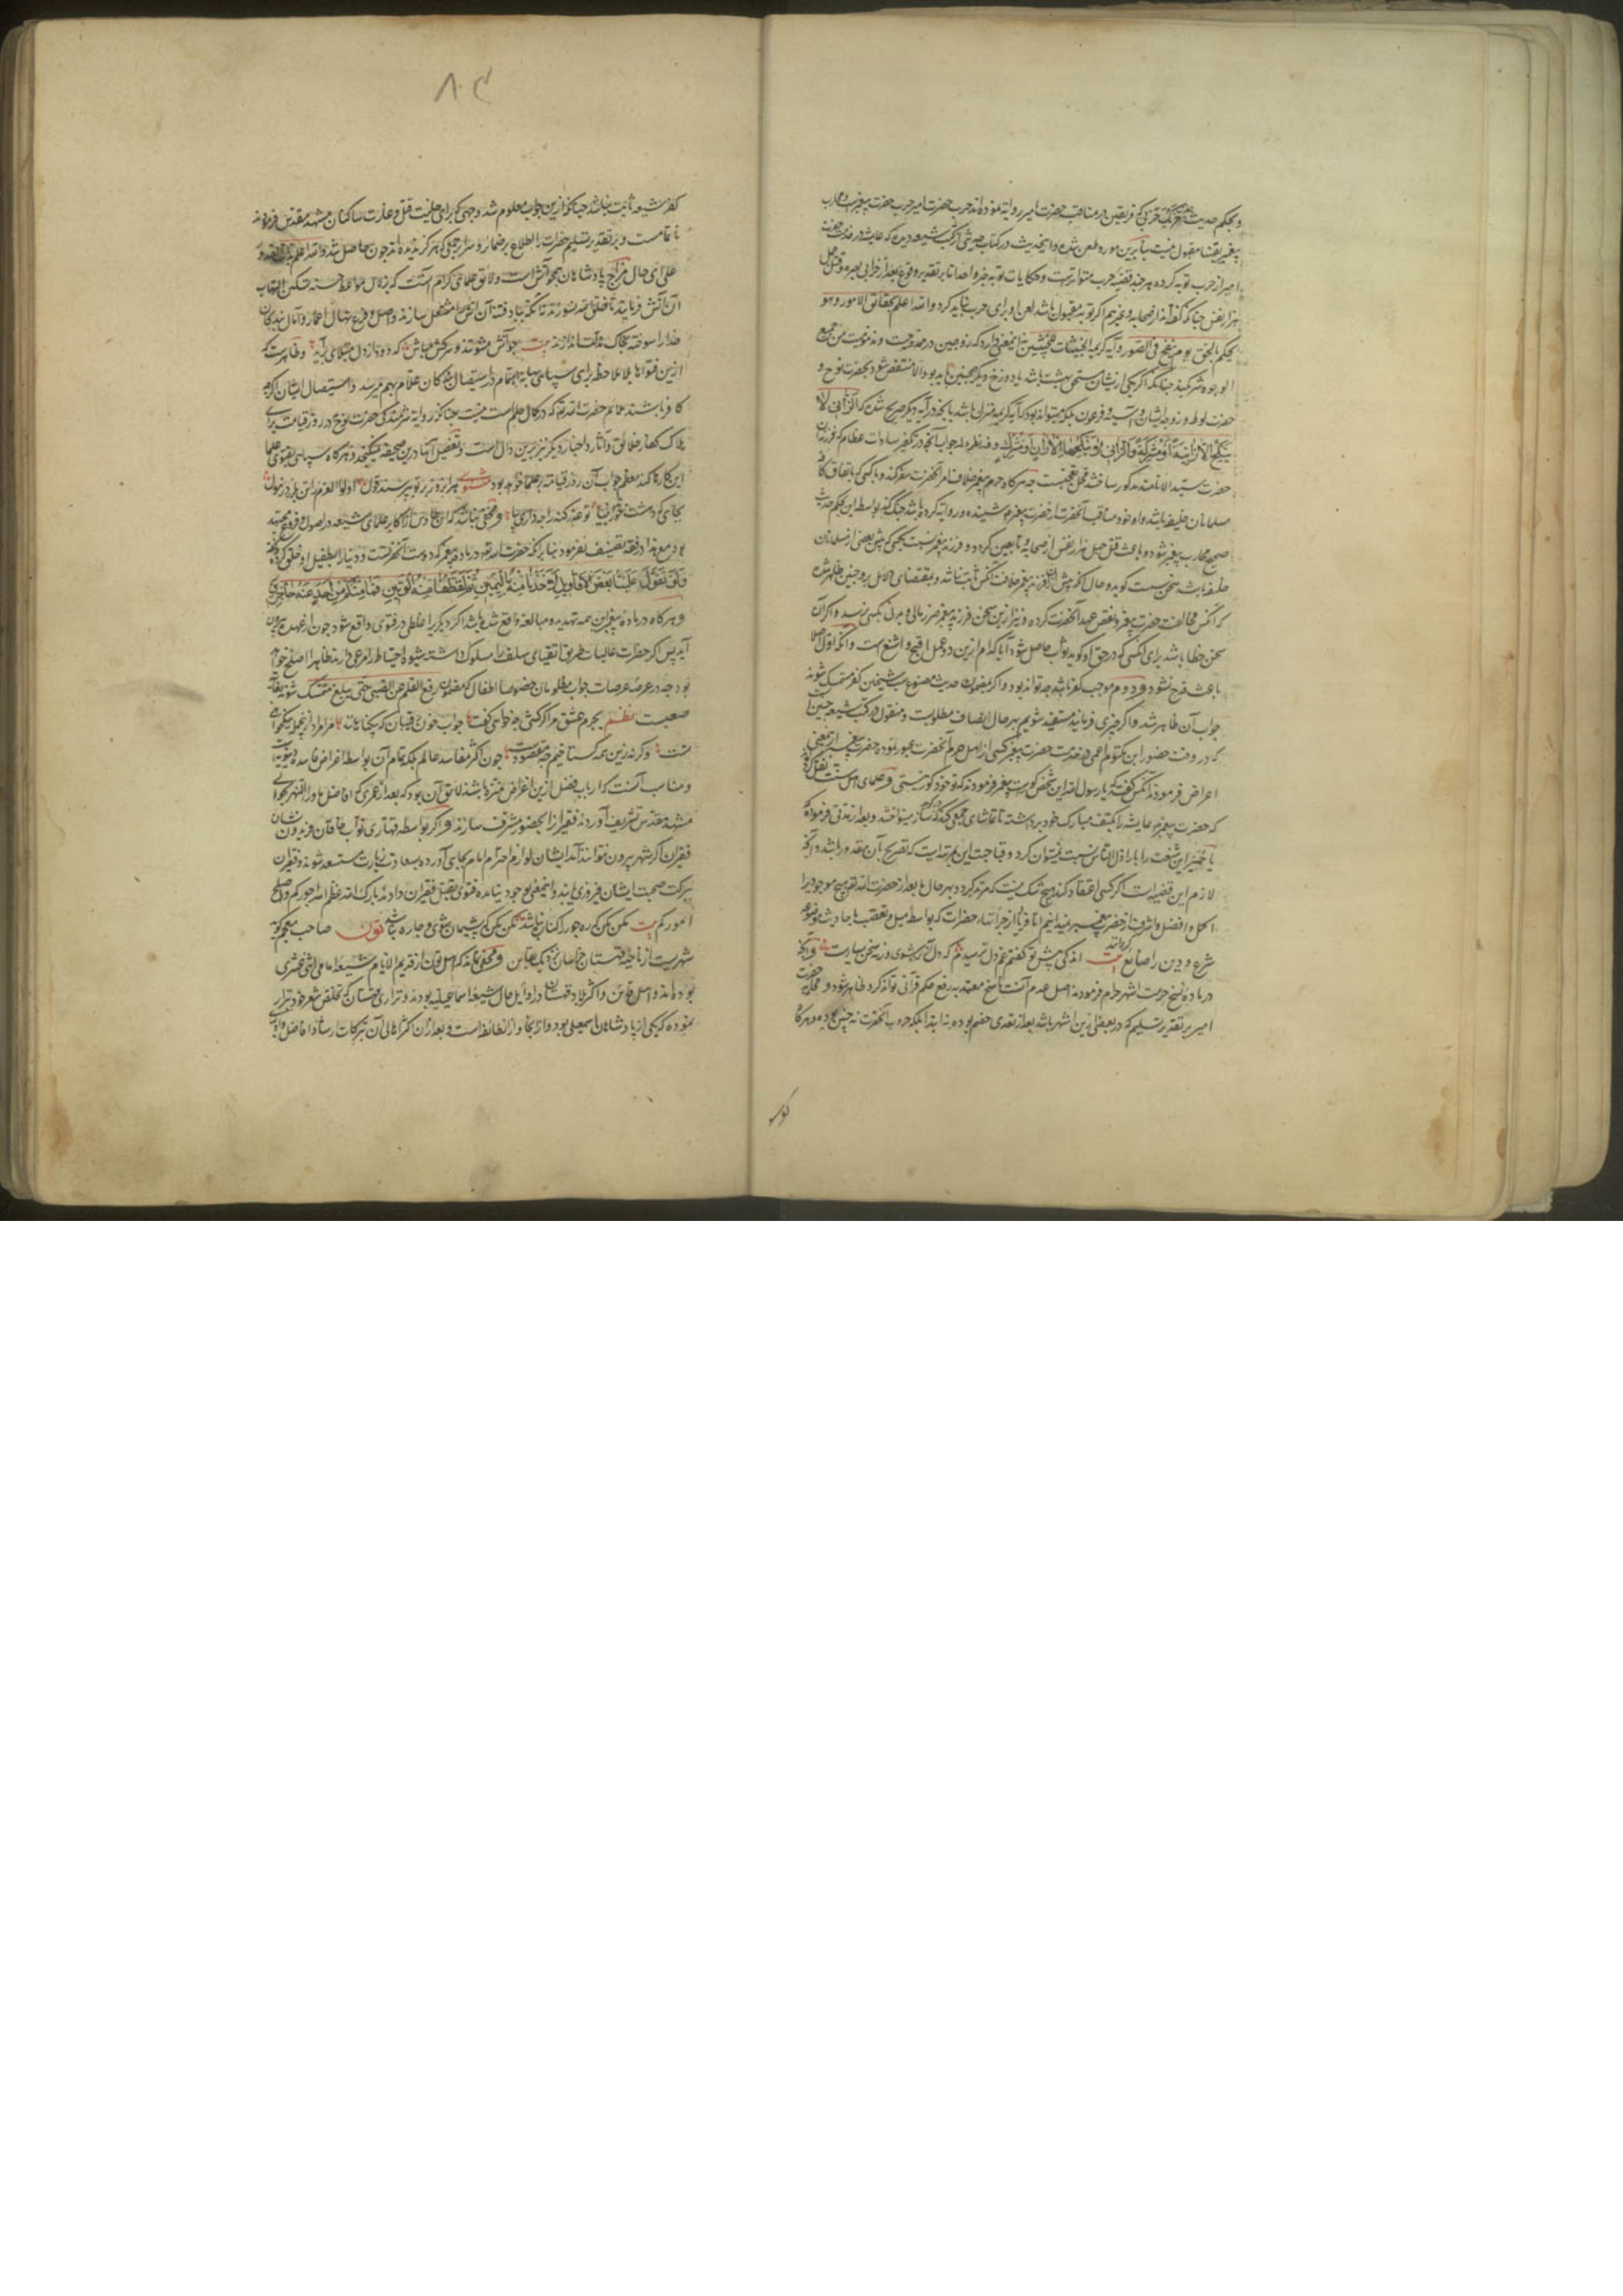 و بحکم حدیث حربک حربی که فریقین در مناقب حضرت امیر روایة نموده‌اند حرب حضرت امیر حرب حضرت پیغمبرست و محارب
پیغمبر یقینا مقبول نیست بنابرین مورد طعن شده و این حدیث در کتاب حدیثی از کتب شیعه دیده که عایشه در خدمت حضرت
امیر از حرب توبه کرده هر چند قضیه حرب متواترست و حکایات توبه خبر واحد اما بر تقدیر وقوع بعد از خرابی بصره و قتل چهل
هزار نفس چنانکه گفته‌اند از صحابه و غیرهم اگر توبه مقبول باشد لعن او برای حرب نباید کرد والله اعلم بحقائق الامور و هو
یحکم بالحق یوم ینفخ فی الصور و آیه کریمه الخبیثات للخبیثین نه این معنی دارد که زوجین در مدوحیت و مذمومیت من جمیع
الوجوه شریکند چنانکه اگر یکی از ایشان مستحق بهشت باشد یا دوزخ دیگری همچنین باید بود والا منتقض شود بحضرت نوح و
حضرت لوط و زوجه ایشان و آسیه و فرعون بلکه میتواند بود که آیه کریمه منزل باشد بآنچه در آیه دیگر صریح شده که الزانی لا
ینکح الا زانیة او مشرکة والزانیة لا ینکحها الا زان او مشرک و فیه نظر و اما جواب آنچه در تکفیر سادات عظام که فرزندان
حضرت سید الانامند مذکور ساخته محل تعجبست چه هر گاه حرم پیغمبر خلاف امر آنحضرت سفر کند و با کسی که باتفاق کافه
مسلمانان خلیفه باشد و او خود مناقب آنحضرت از حضرت پیغمبر شنیده و روایة کرده باشد جنگ کند بواسطه این بحکم حدیث
صحیح محارب پیغمبر شود و باعث قتل چهل هزار نفس از صحابه و تابعین گردد و فرزند پیغمبر نسبت بکسی که پیش بعضی از مسلمانان
خلیفه باشد سخن سست گوید و حال آنکه پیش آن فرزند پیغمبر خلافت آنکس ثابت نباشد و بمقتضای دلائل بر وجنین ظاهر شده
که آنکس مخالفت حضرت پیغمبر و نقض عهد آنحضرت کرده و نیز ازین سخن فرزند پیغمبر ضرر مالی و بدنی بکسی نرسد و اگر آن
سخن خطا باشد برای آنکسی که در حق او گوید ثواب حاصل شود آیا کدام ازین دو عمل اقبح و اشنع است و آنکه اول اصلا
باعث قدح نشود و دوم موجب کفر باشد چه تواند بود و اگر بمضمون حدیث موضوع سب شیخین کفر متمسک شوند
جواب آن ظاهر شد و اگر چیزی فرمایند مستفید شویم بهر حال انصاف مطلوبست و منقول در کتب شیعه چنین است
که در وقت حضور ابن مکتوم اعمی در خدمت حضرت پیغمبر یکی از اهل حرم آنحضرت عبور نمود حضرت پیغمبر ازین معنی
اعراض فرمودند آنکس گفت که یا رسول الله این شخص کورست پیغمبر فرمودند که تو خود کور نیستی و علمای اهل سنت نقل کرده‌اند
که حضرت پیغمبر عایشه را بکتف مبارک خود برداشته تا تماشای جمعی کند که ساز مینواختند و بعد از زمانی فرمودند که
یا حمیرا این شنعت را باراذل الناس نسبت نمیتوان کرد و قباحت این بمرتبه‌ایست که تصریح بآن مقدور نباشد و آنکه
لازم این قضیه است اگر کسی اعتقاد کند هیچ شک نیست که مرتد گردد و بهر حال ما بعد از حضرت الله تعالی هیچ موجود را
اکمل و افضل و اشرف از حضرت پیغمبر نمیدانیم اما فریاد از جرأت‌های حضرات که بواسطه میل و تعصب باحادیث موضوعه
شرع و دین را ضایع کرده‌اند بیت اندکی پیش تو گفتم غم دل ترسیدم که دل آزرده شوی ورنه سخن بسیارست و آنچه
در باده نسخ حرمت اشهر حرام فرمودند اصل عدم آنست تا نسخ معتمد به رفع حکم قرآنی تواند کرد ظاهر شود و محاربه حضرت
امیر بر تقدیر تسلیم که در بعضی ازین اشهر باشد بعد از تعدی خصم بوده نه ابتدا بلکه حروب آنحضرت نه چنین بوده و هر گاه
کفر
۸۰۴
کفر شیعه ثابت نباشد چنانکه ازین جواب معلوم شد وجهی که برای حلیت قتل و غارت ساکنان مشهد مقدس فرموده‌اند
ناتمامست و بر تقدیر تسلیم حضرات را اطلاع بر ضمایر و سرایر جمعی که هرگز ندیده‌اند چون حاصل شد والله اعلم بذات الصدور
علی ای حال مزاج پادشاهان همچو آتش است و لائق علمای کرام آنست که بزلال مواعظ حسنه تسکین التهاب
آن آتش فرمایند تا خلق الله نسوزند نه آنکه بباد فتنه آن آتش را مشتعل سازند و اصل و فرع نهال اعمار و آمال بندگان
خدا را سوخته بخاک مذلت اندازند بیت چو آتش مشو تند و سرکش مباش که دود از دل مبتلائی برآید و ظاهرست که
ازین فتواها بلا ملاحظه برای سپاهی بهانه اهتمام در استیصال بندگان علام بهم میرسد و استیصال ایشان اگر چه
کافر باشند ملائم حضرت الله تعالی که در کمال حلم است نیست چنانکه روایة شرمندگی حضرت نوح در روز قیامت برای
هلاک کفار خلائق و آثار و اخبار دیگر نیز برین دال است و تفصیل آنها درین صحیفه نمیگنجد و هر گاه سپاهی بفتوی علما
این کارها کند معظم جواب آن روز قیامة بر علما خواهد بود مثنوی هر آن روز کز تو بپرسند قول اولوا العزم را تن بلرزد ز هول
بجائی که دهشت خورند انبیا تو عذر گنه را چه داری بیا و مخفی نباشد که ابن طاوس از اکابر علمای شیعه در اصول و فروع مجتهد
بود مع هذا در فقه تصنیف نفرمود بنابر آنکه حضرت الله تعالی در باده پیغمبر که دوست آنحضرتست و دنیا را بطفیل او خلق کرده گفته
ولو تقول علینا بعض الاقاویل لاخذنا منه بالیمین ثم لقطعنا منه الوتین فما منکم من احد عنه حاجزین
و هر گاه در باده پیغمبر این همه تهدید و مبالغه واقع شده باشد اگر دیگری را غلطی در فتوی واقع شود چون از عهده بیرون
آید پس اگر حضرات عالیات طریق اتقیای سلف را مسلوک داشته شیوه احتیاط را مرعی دارند ظاهرا اصلح خواهد
بود چه در عرصه عرصات جواب مظلومان خصوصا اطفال که بمضمون رفع القلم عن الصبی حتی یبلغ متمسک شوند بغایت
صعبست نظم بجرم عشق مرا گر کشی چه خواهی گفت جواب خون رقیبان که بیگناهانند مرا مراد ازین جمله نیکخواهی
تست وگرنه زین همه گستاخیم چه مقصودست چون اکثر مفاسد عالم بلکه تمام آن بواسطه اغراض فاسده دنیویست
و مناسب آنست که ارباب فضل ازین اغراض منزه باشند لائق آن بود که بعد از عمری که افاضل ماوراءالنهر بحوالی
مشهد مقدس تشریف آوردند فقیر را از بحضور مشرف سازند و اگر بواسطه قهاری نواب خاقان فریدون نشان
فقیران اگر شهر بیرون نتوانند آمد ایشان لوازم احترام امام بجای آورده بسعادت زیارت مستسعد شوند و فقیران
ببرکت صحبت ایشان فیروزی یابند و اینمعنی بوجود نیامده فتوی بقتل فقیران دادند بارک الله عظم الله اجورکم و اصلح
امورکم بیت مکن مکن که ره جور را کناری نباشد مکن مکن که پشیمان شوی و چاره نباشد تون صاحب معجم گوید
شهریست از ناحیه قهستان خراسان نزدیک بقاین و مخفی نماند که اهل تون از قدیم الایام شیعه امامی اثنی عشری
بوده‌اند و اهل قاین و اکثر بلاد قهستان در اوایل حال شیعه اسماعیلیه بودند و نزاری قهستانی که تخلص شعر خود نزاری
نموده که یکی از پادشاهان اسمعیلی بود و از آنجا و از آن طائفه است و بعد از آن اکثر اهالی آن ببرکات ارشاد افاضل